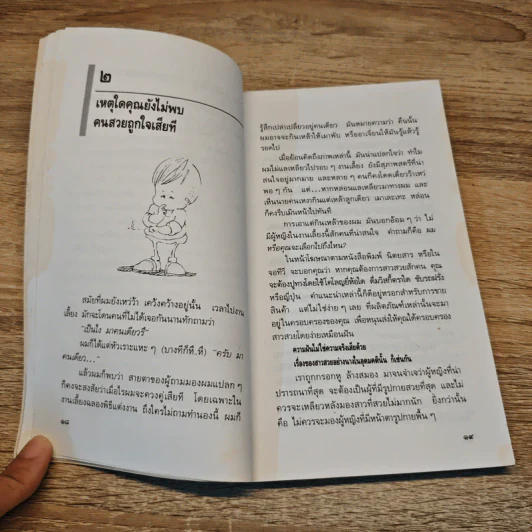 ๒
เหตุใดคุณยังไม่พบ
คนสวยถูกใจเสียที
สมัยที่ผมยังเหว่ว้า เคว้งคว้างอยู่นั้น เวลาไปงาน
เลี้ยง มักจะโดนคนที่ไม่ได้เจอกันนานทักถามว่า
"เป็นไง มาคนเดียวรึ"
ผมก็ได้แต่หัวเราะแหะ ๆ (บางทีก็ หึ..หึ) "ครับ มา
คนเดียว..."
แล้วผมก็พบว่า สายตาของผู้ถามมองผมแปลก ๆ
ก็คงจะสงสัยว่าเมื่อไรผมจะควงคู่เสียที โดยเฉพาะใน
งานเลี้ยงฉลองพิธีแต่งงาน ถึงใครไม่ถามทำนองนี้ ผมก็
๑๘
รู้สึกเปล่าเปลี่ยวอยู่คนเดียว มันหมายความว่า คืนนั้น
ผมอาจจะกินเหล้าให้เมาพับ หรืออาเจียนให้มันรู้แล้วรู้
รอดไป
เมื่อย้อนคิดถึงภาพเหล่านี้ มันน่าแปลกใจว่า ทำไม
ผมไม่แลเหลียวไปรอบ ๆ งานเลี้ยง ยังมีสุภาพสตรีที่น่า
สนใจอยู่มากมาย และหลาย ๆ คนก็คงโดดเดี่ยววิเหว่
พอ ๆ กัน แต่...หากหล่อนแลเหลียวมาทางผม และ
เห็นนายคนเหงากินแต่เหล้าลูกเดียว เมาเละเทะ หล่อน
ก็คงรีบเมินหน้าไปทันที
การเอาแต่กินเหล้าของผม มันบอกย้อม ๆ ว่า ไม่
มีผู้หญิงในงานเลี้ยงนี้สักคนที่น่าสนใจ คำถามก็คือ ผม
หรือคุณจะเลือกไปถึงไหน?
ในหน้าโฆษณาตามหนังสือพิมพ์ นิตยสาร หรือใน
จอทีวี จะบอกคุณว่า หากคุณต้องการสาวสวยสักคน คุณ
จะต้องปูทางโดยใช้โคโลญยี่ห้อใด ดื่มวิสกี้ตราใด ขับรถฝรั่ง
หรือญี่ปุ่น คำแนะนำเหล่านี้ก็ดีอยู่หรอกสำหรับการขาย
สินค้า แต่ไม่ใช่ง่าย ๆ เลย ที่ผลิตภัณฑ์เหล่านั้นจะมา
อยู่ในครอบครองของคุณ เพื่อหนุนส่งให้คุณได้ครอบครอง
สาวสวยโดยง่ายเหมือนฝัน
ความฝันไม่ใช่ความจริงเสียด้วย
เรื่องของสาวสวยอย่างนางในอุดมคตินั้น ก็เช่นกัน
เราถูกกรอกหู ล้างสมอง มาจนจำเจว่าผู้หญิงที่น่า
ปรารถนาที่สุด จะต้องเป็นผู้ที่มีรูปกายสวยที่สุด และไม่
ควรจะเหลียวหลังมองสาวที่สวยไม่มากนัก ยิ่งกว่านั้น
คือ ไม่ควรจะมองผู้หญิงที่มีหน้าตารูปกายพื้น ๆ
๑๙